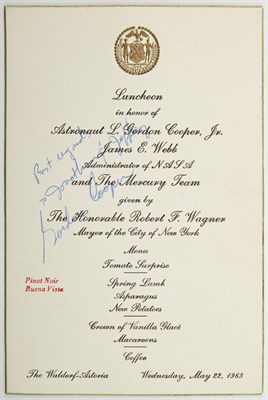 Luncheon
in honor of
Astronaut L. Gordon Cooper, Jr.
James E. Webb
Administrator of NASA
and The Mercury Team
given by
The Honorable Robert F. Wagner
Mayor of the City of New York
Best regards
to Jonathan
Gordon Cooper
Menu
Tomato Surprise
Spring Lamb
Asparagus
New Potatoes
Pinot Noir
Buena Vista
Crown of Vanilla Glacé
Macaroons
Coffee
The Waldorf-Astoria Wednesday, May 22, 1963